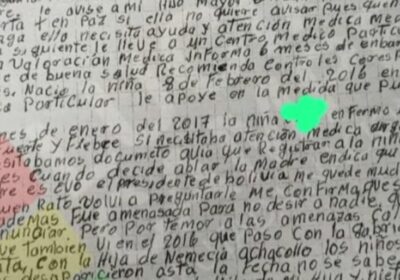 le avise a mi hijo mayor
en paz si ella no quiere avisar pues que
ella necesita ayuda y atención medica
siguiente le lleve a un centro medico Partic
Valoración Medica Informa 6 meses de emba
de buena salud Recomendo controles
Nacio la niña 8 de Febrero del 2016 en
Particular le apoye en la medida que pu
mes de enero del 2017 la niña enfermo
Fuerte y Fiebre si necesitaba atención medica
documento avia que Registrar a la niñ
Cuando decide ablar la Madre endica que
es evo el presidente de bolivia me quede mud
Buen Rato volvi a preguntarle me confirma que s
Fue amenasada Para no desir a nadie
pero Por temor a las amenazas
Tambien vi en el 2016 que paso con la gabrie
con la Hija de Nemecia achacollo los niños
asta la fecha no se sabe